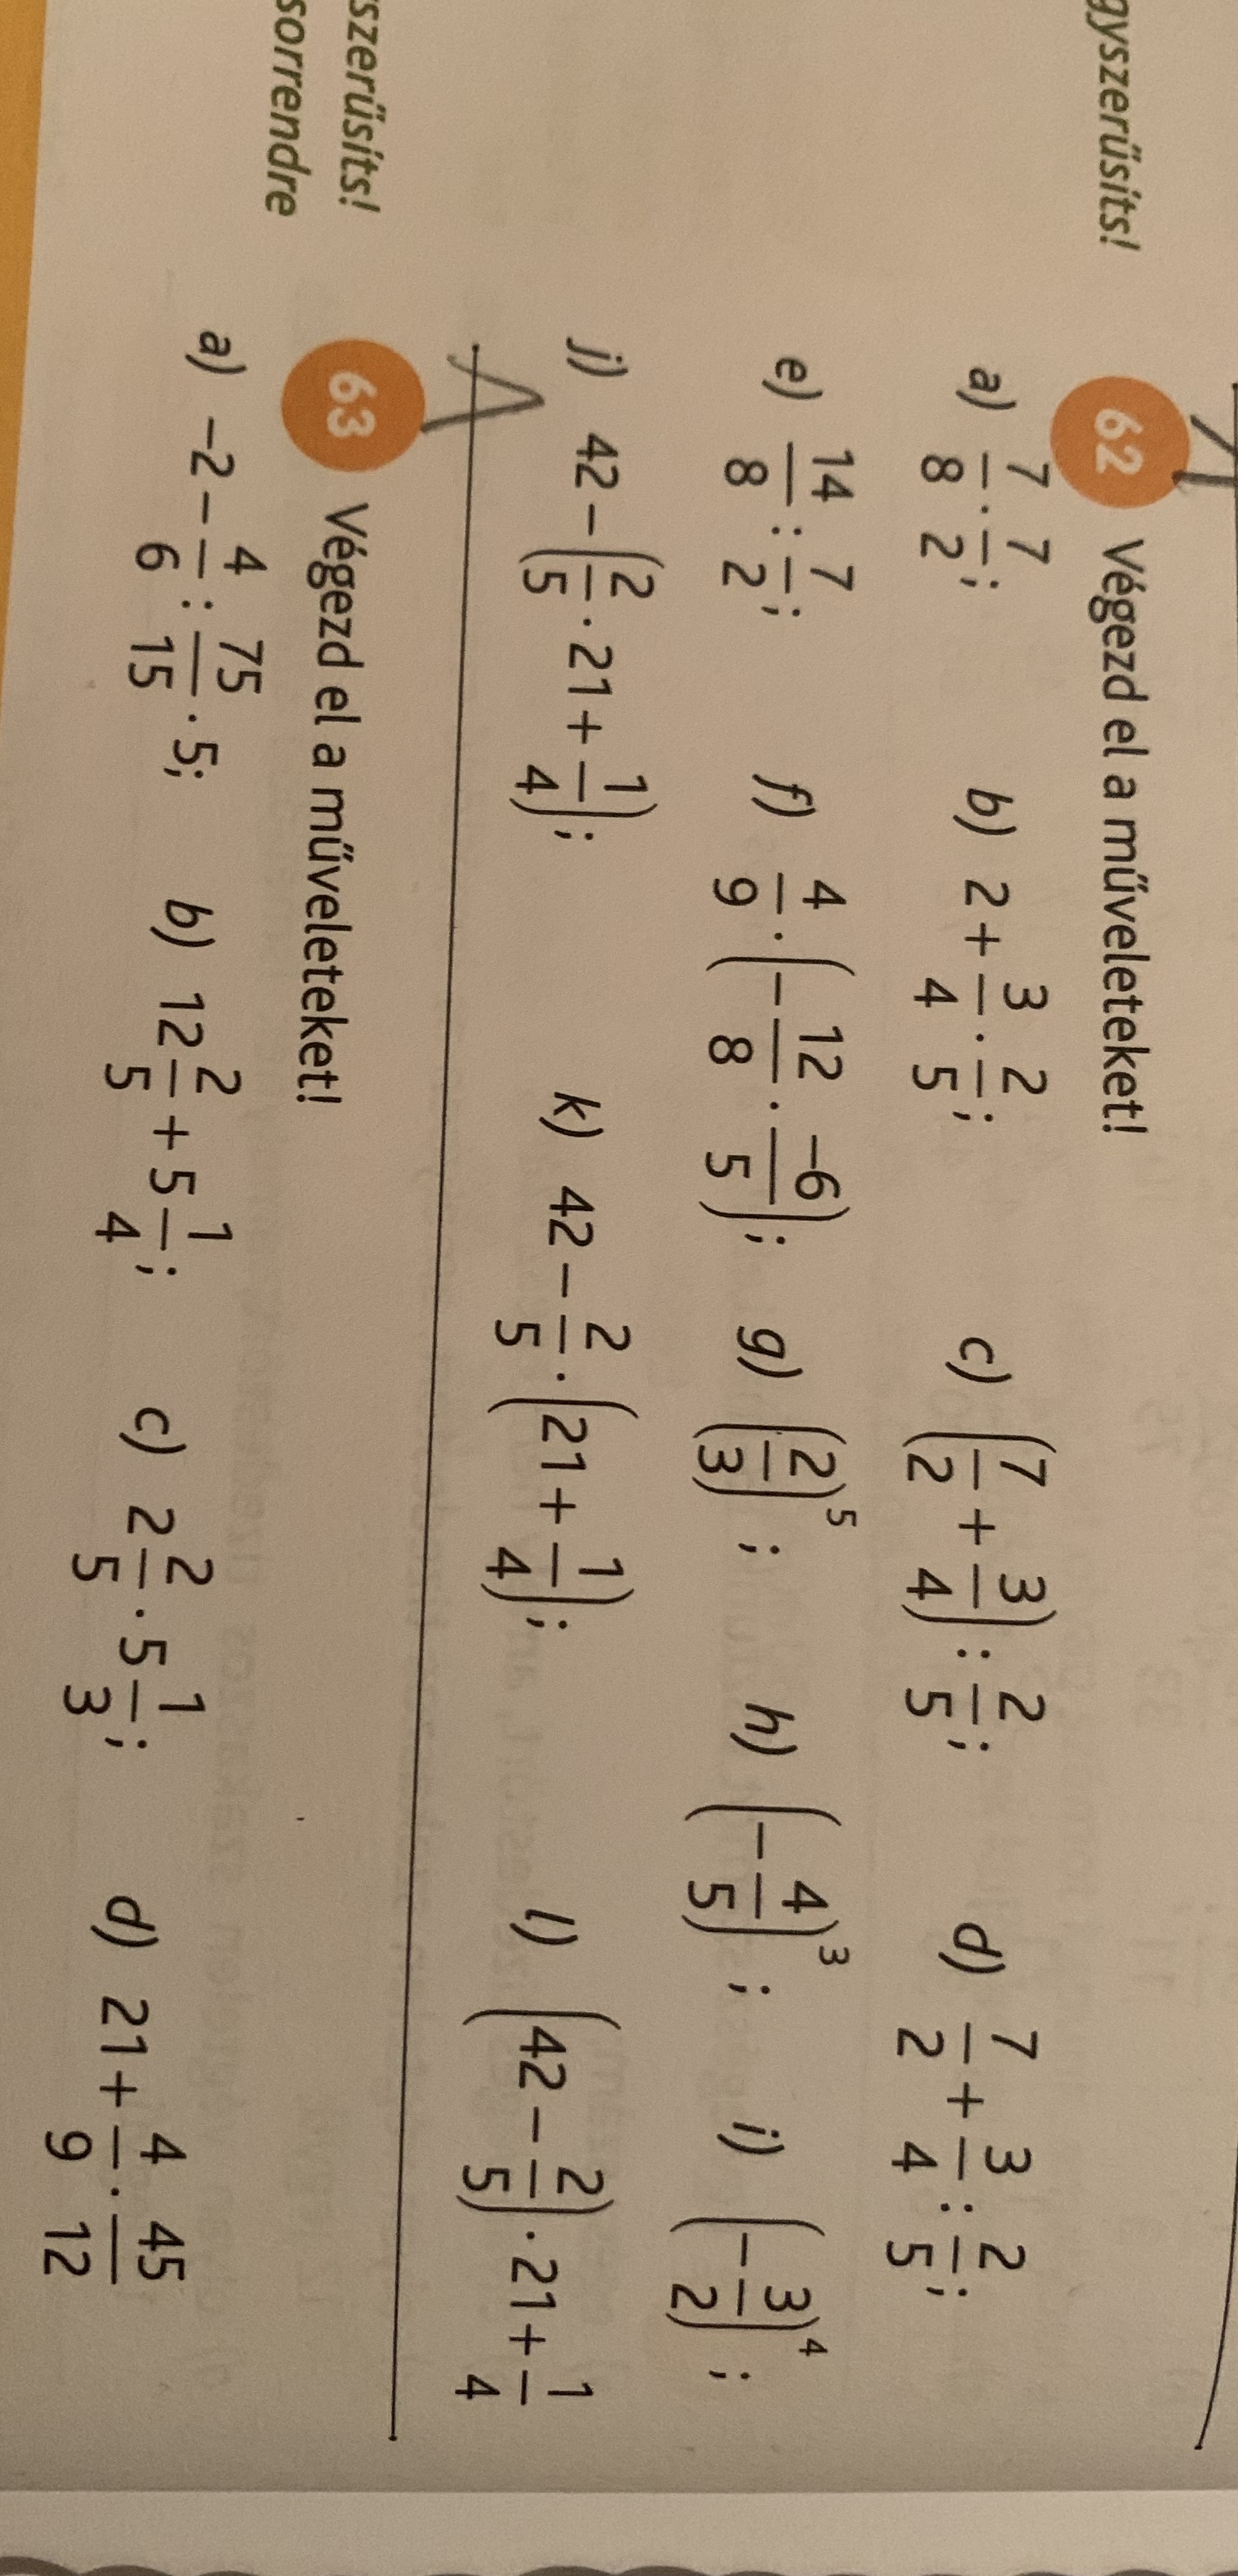 gyszerűsíts!
62 Végezd el a műveleteket!
a) 7/8 · 7/2; b) 2 + 3/4 · 2/5; c) (7/2 + 3/4) : 2/5; d) 7/2 + 3/4 : 2/5;
e) 14/8 : 7/2; f) 4/9 · (− 12/8 · −6/5); g) (2/3)⁵; h) (− 4/5)³; i) (− 3/2)⁴;
j) 42 − (2/5 · 21 + 1/4); k) 42 − 2/5 · (21 + 1/4); l) (42 − 2/5) · 21 + 1/4
szerűsíts!
sorrendre
63 Végezd el a műveleteket!
a) −2 − 4/6 : 75/15 · 5; b) 12 2/5 + 5 1/4; c) 2 2/5 · 5 1/3; d) 21 + 4/9 · 45/12